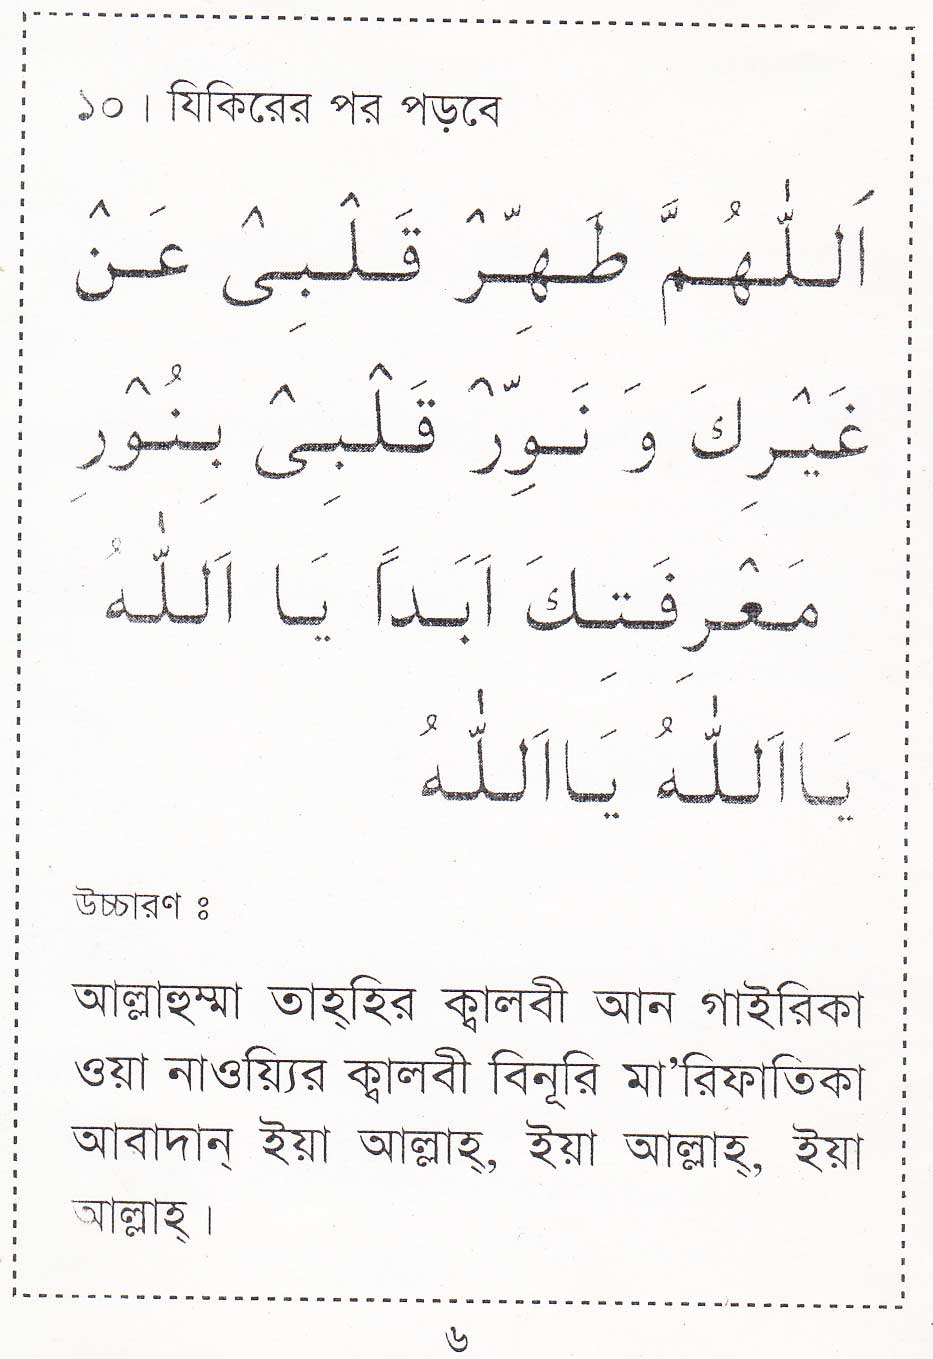 ১০। যিকিরের পর পড়বে
اَللّٰهُمَّ طَهِّرْ قَلْبِىْ عَنْ
غَيْرِكَ وَ نَوِّرْ قَلْبِىْ بِنُوْرِ
مَعْرِفَتِكَ اَبَداً يَا اَللّٰهُ
يَااَللّٰهُ يَااَللّٰهُ
উচ্চারণ ঃ
আল্লাহুম্মা তাহ্হির ক্বালবী আন গাইরিকা
ওয়া নাওয়্যির ক্বালবী বিনূরি মা’রিফাতিকা
আবাদান্ ইয়া আল্লাহ্, ইয়া আল্লাহ্, ইয়া
আল্লাহ্।
৬